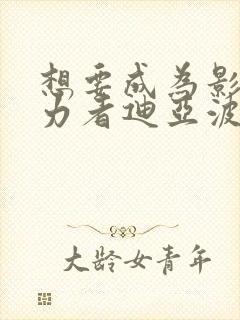 想要成为影
力者迪亚波
大龄女青年